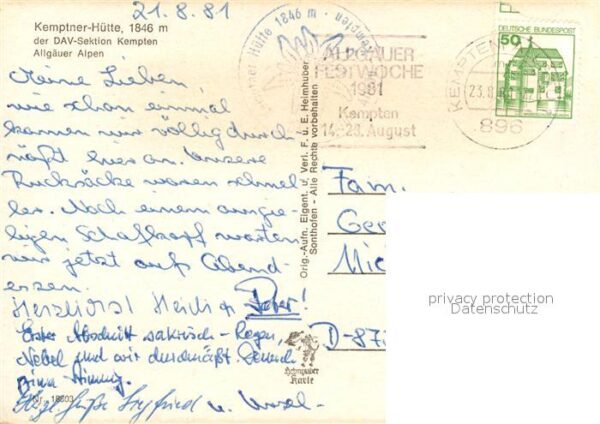 21.8.81
Kemptner-Hütte, 1846 m
der DAV-Sektion Kempten
Allgäuer Alpen
Meine Lieben!
wie schon einmal
kamen wir völlig durch-
näßt hier an. Unsere
Rucksäcke waren schnel-
ler. Nach einem ausgie-
bigen Schafkopf warten
wir jetzt auf Abend-
essen.
Herzlichst Heidi + Peter!
Erster Abschnitt sakrisch - Regen,
Nebel und wir durchnäßt. Dennoch
prima Stimmung.
Nr. 18603
Grüße Siegfried u.
Hütte 1846 m
ALLGÄUER
FESTWOCHE
1981
Kempten
14.-23. August
KEMPTEN
23.8.
896
DEUTSCHE BUNDESPOST
50
Orig.-Aufn. Eigent. u. Verl. F. u. E. Heimhuber
Sonthofen - Alle Rechte vorbehalten
Heimhuber
Karte
Fam.
Geo
Mic
D-87
privacy protection
Datenschutz